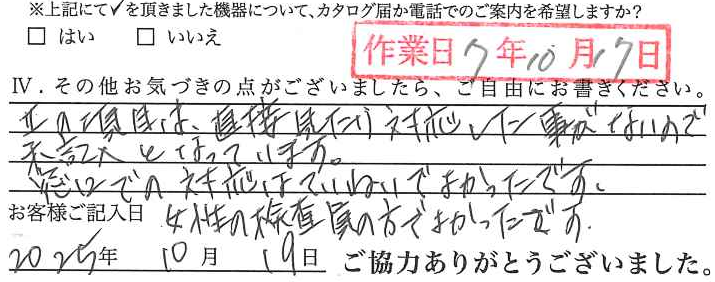 ※上記にて✓を頂きました機器について、カタログ届か電話でのご案内を希望しますか?
□ はい □ いいえ
作業日 7年10月17日
Ⅳ．その他お気づきの点がございましたら、ご自由にお書きください。
Ⅱの項目は、直接見たり対応した事がないので
未記入となっています。
窓口での対応はていねいでよかったです。
お客様ご記入日 女性の検査員の方でよかったです.
2025年 10月 19日 ご協力ありがとうございました。